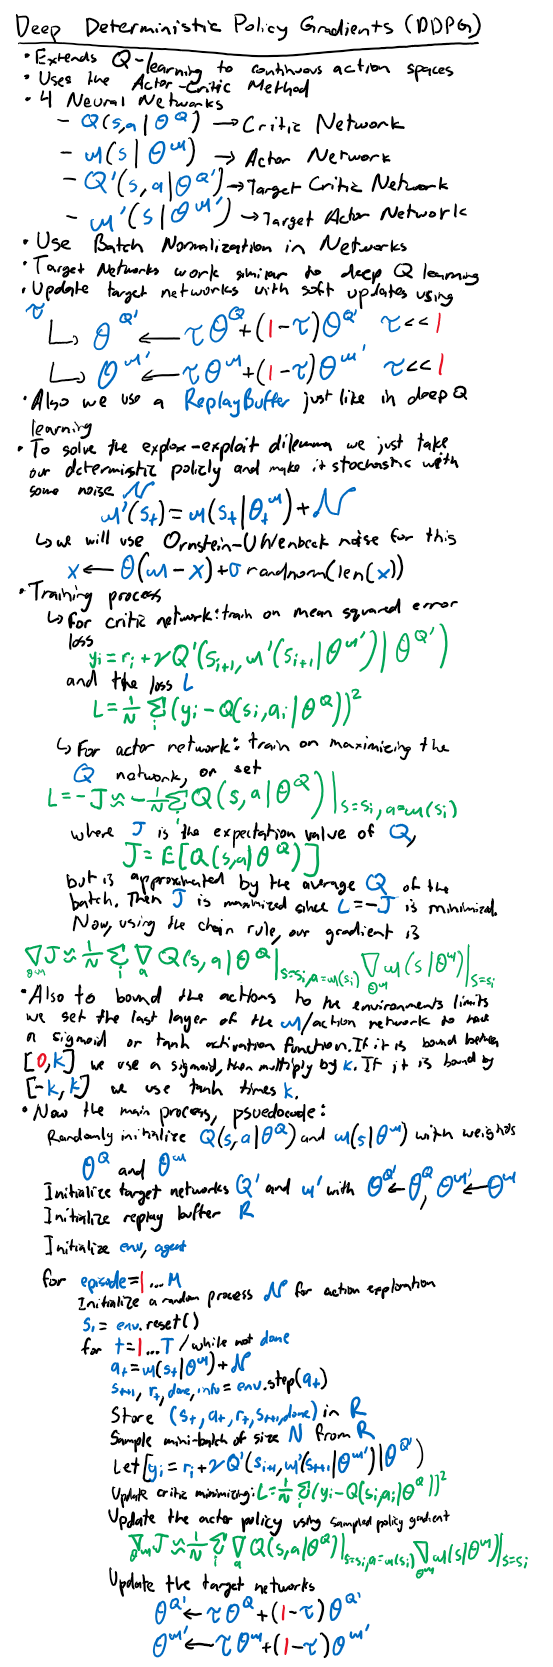 Deep Deterministic Policy Gradients (DDPG)
• Extends Q-learning to continuous action spaces
• Uses the Actor-Critic Method
• 4 Neural Networks
- Q(s,a|θ^Q) → Critic Network
- μ(s|θ^μ) → Actor Network
- Q'(s,a|θ^Q') → Target Critic Network
- μ'(s|θ^μ') → Target Actor Network
• Use Batch Normalization in Networks
• Target Networks work similar to deep Q learning
• Update target networks with soft updates using
τ
↳ θ^Q' ← τθ^Q+(1-τ)θ^Q' τ<<1
↳ θ^μ' ← τθ^μ+(1-τ)θ^μ' τ<<1
• Also we use a ReplayBuffer just like in deep Q
learning
• To solve the explor-exploit dilemma we just take
our determistic policly and make it stochastic with
some noise N
μ'(s_t)=μ(s_t|θ_t^μ)+N
↳ we will use Ornstein-Uhlenbeck noise for this
x ← θ(μ-x)+σ randnorm(len(x))
• Training process
↳ For critic network: train on mean squared error
loss
y_i = r_i + γQ'(s_{i+1}, μ'(s_{i+1}|θ^μ')|θ^Q')
and the loss L
L = 1/N Σ_i (y_i - Q(s_i,a_i|θ^Q))^2
↳ For actor network: train on maximizing the
Q network, or set
L=-J≈-1/N Σ_i Q(s,a|θ^Q)|_{s=s_i,a=μ(s_i)}
where J is the expectation value of Q,
J=E[Q(s,a|θ^Q)]
but is approximated by the average Q of the
batch. Then J is maximized since L=-J is minimized.
Now, using the chain rule, our gradient is
∇_{θ^μ}J≈1/N Σ_i ∇_a Q(s,a|θ^Q)|_{s=s_i,a=μ(s_i)} ∇_{θ^μ} μ(s|θ^μ)|_{s=s_i}
• Also to bound the actions to the environments limits
we set the last layer of the μ/action network to have
a sigmoid or tanh activation function. If it is bound between
[0,k] we use a sigmoid, then multiply by k. If it is bound by
[-k,k] we use tanh times k.
• Now the main process, psuedocode:
Randomly initialize Q(s,a|θ^Q) and μ(s|θ^μ) with weights
θ^Q and θ^μ
Initialize target networks Q' and μ' with θ^Q'←θ^Q, θ^μ'←θ^μ
Initialize replay buffer R
Initialize env, agent
for episode=1...M
Initialize a random process N for action exploration
s_1 = env.reset()
for t=1...T / while not done
a_t=μ(s_t|θ^μ)+N
s_{t+1}, r_t, done, info = env.step(a_t)
Store (s_t, a_t, r_t, s_{t+1}, done) in R
Sample mini-batch of size N from R
Let [y_i = r_i + γQ'(s_{i+1}, μ'(s_{t+1}|θ^μ')|θ^Q')
Update critic minimizing: L=1/N Σ_i (y_i-Q(s_i,a_i|θ^Q))^2
Update the actor policy using sampled policy gradient
∇_{θ^μ}J≈1/N Σ_i ∇_a Q(s,a|θ^Q)|_{s=s_i,a=μ(s_i)} ∇_{θ^μ} μ(s|θ^μ)|_{s=s_i}
Update the target networks
θ^Q' ← τθ^Q+(1-τ)θ^Q'
θ^μ' ← τθ^μ+(1-τ)θ^μ'